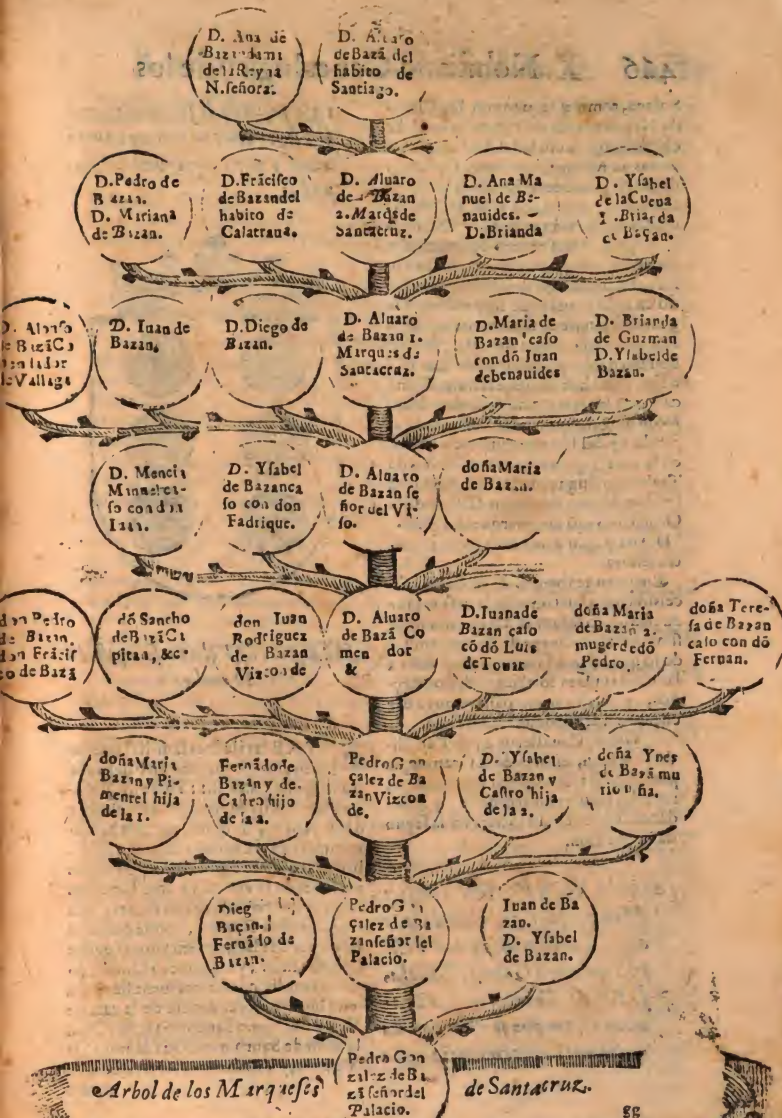 D. Ana de
Bazandama
delaReyna
N.señora.
D. Aluaro
deBazã del
habito de
Santiago.
D.Pedro de
Bazan.
D. Mariana
de Bazan.
D.Frãcisco
deBazandel
habito de
Calatraua.
D. Aluaro
de Bazan
2.Marq̃sde
Santacruz.
D. Ana Ma
nuel de Be-
nauides.
D.Brianda
D. Ysabel
de laCueua
D.Brianda
de Baçan.
D. Alonso
de BazãCo
mendador
D. Iuan de
Bazan.
D.Diego de
Bazan.
D. Aluaro
de Bazan 1.
Marques de
Santacruz.
D.Maria de
Bazan caso
con dõ Juan
debenauides
D. Brianda
de Guzman
D.Ysabelde
Bazan.
D. Mencia
con don
Iuan.
D. Ysabel
de Bazanca
so con don
Fadrique.
D. Aluaro
de Bazan se
ñor del Vi-
so.
doña Maria
de Bazan.
don Pedro
de Bazan.
don Frãcis
co de Bazã
dõ Sancho
deBazãCa
pitan, &c.
don Iuan
Rodriguez
de Bazan
Vizconde
D. Aluaro
de Bazã Co
men dor
&
D.Iuanade
Bazan caso
cõ dõ Luis
deTouar
doña Maria
de Bazan 2.
mugerdedõ
Pedro.
doña Tere-
sa de Bazan
caso con dõ
Fernan.
doñaMaria
Bazan y Pi-
mentel hija
de la 1.
Fernãdode
Bazan y de
Castro hijo
de la 2.
Pedro Gon
çalez de Ba
zan Vizcon
de.
D. Ysabel
de Bazan y
Castro hija
de la 2.
doña Ynes
de Bazã mu
rio niña.
Dieg
Baçan.
Fernãdo de
Bazan.
PedroGon
çalez de Ba
zanseñor del
Palacio.
Iuan de Ba
zan.
D. Ysabel
de Bazan.
Pedro Gon
zalez deBa
zã señordel
Palacio.
Arbol de los Marqueses de Santacruz.
gg